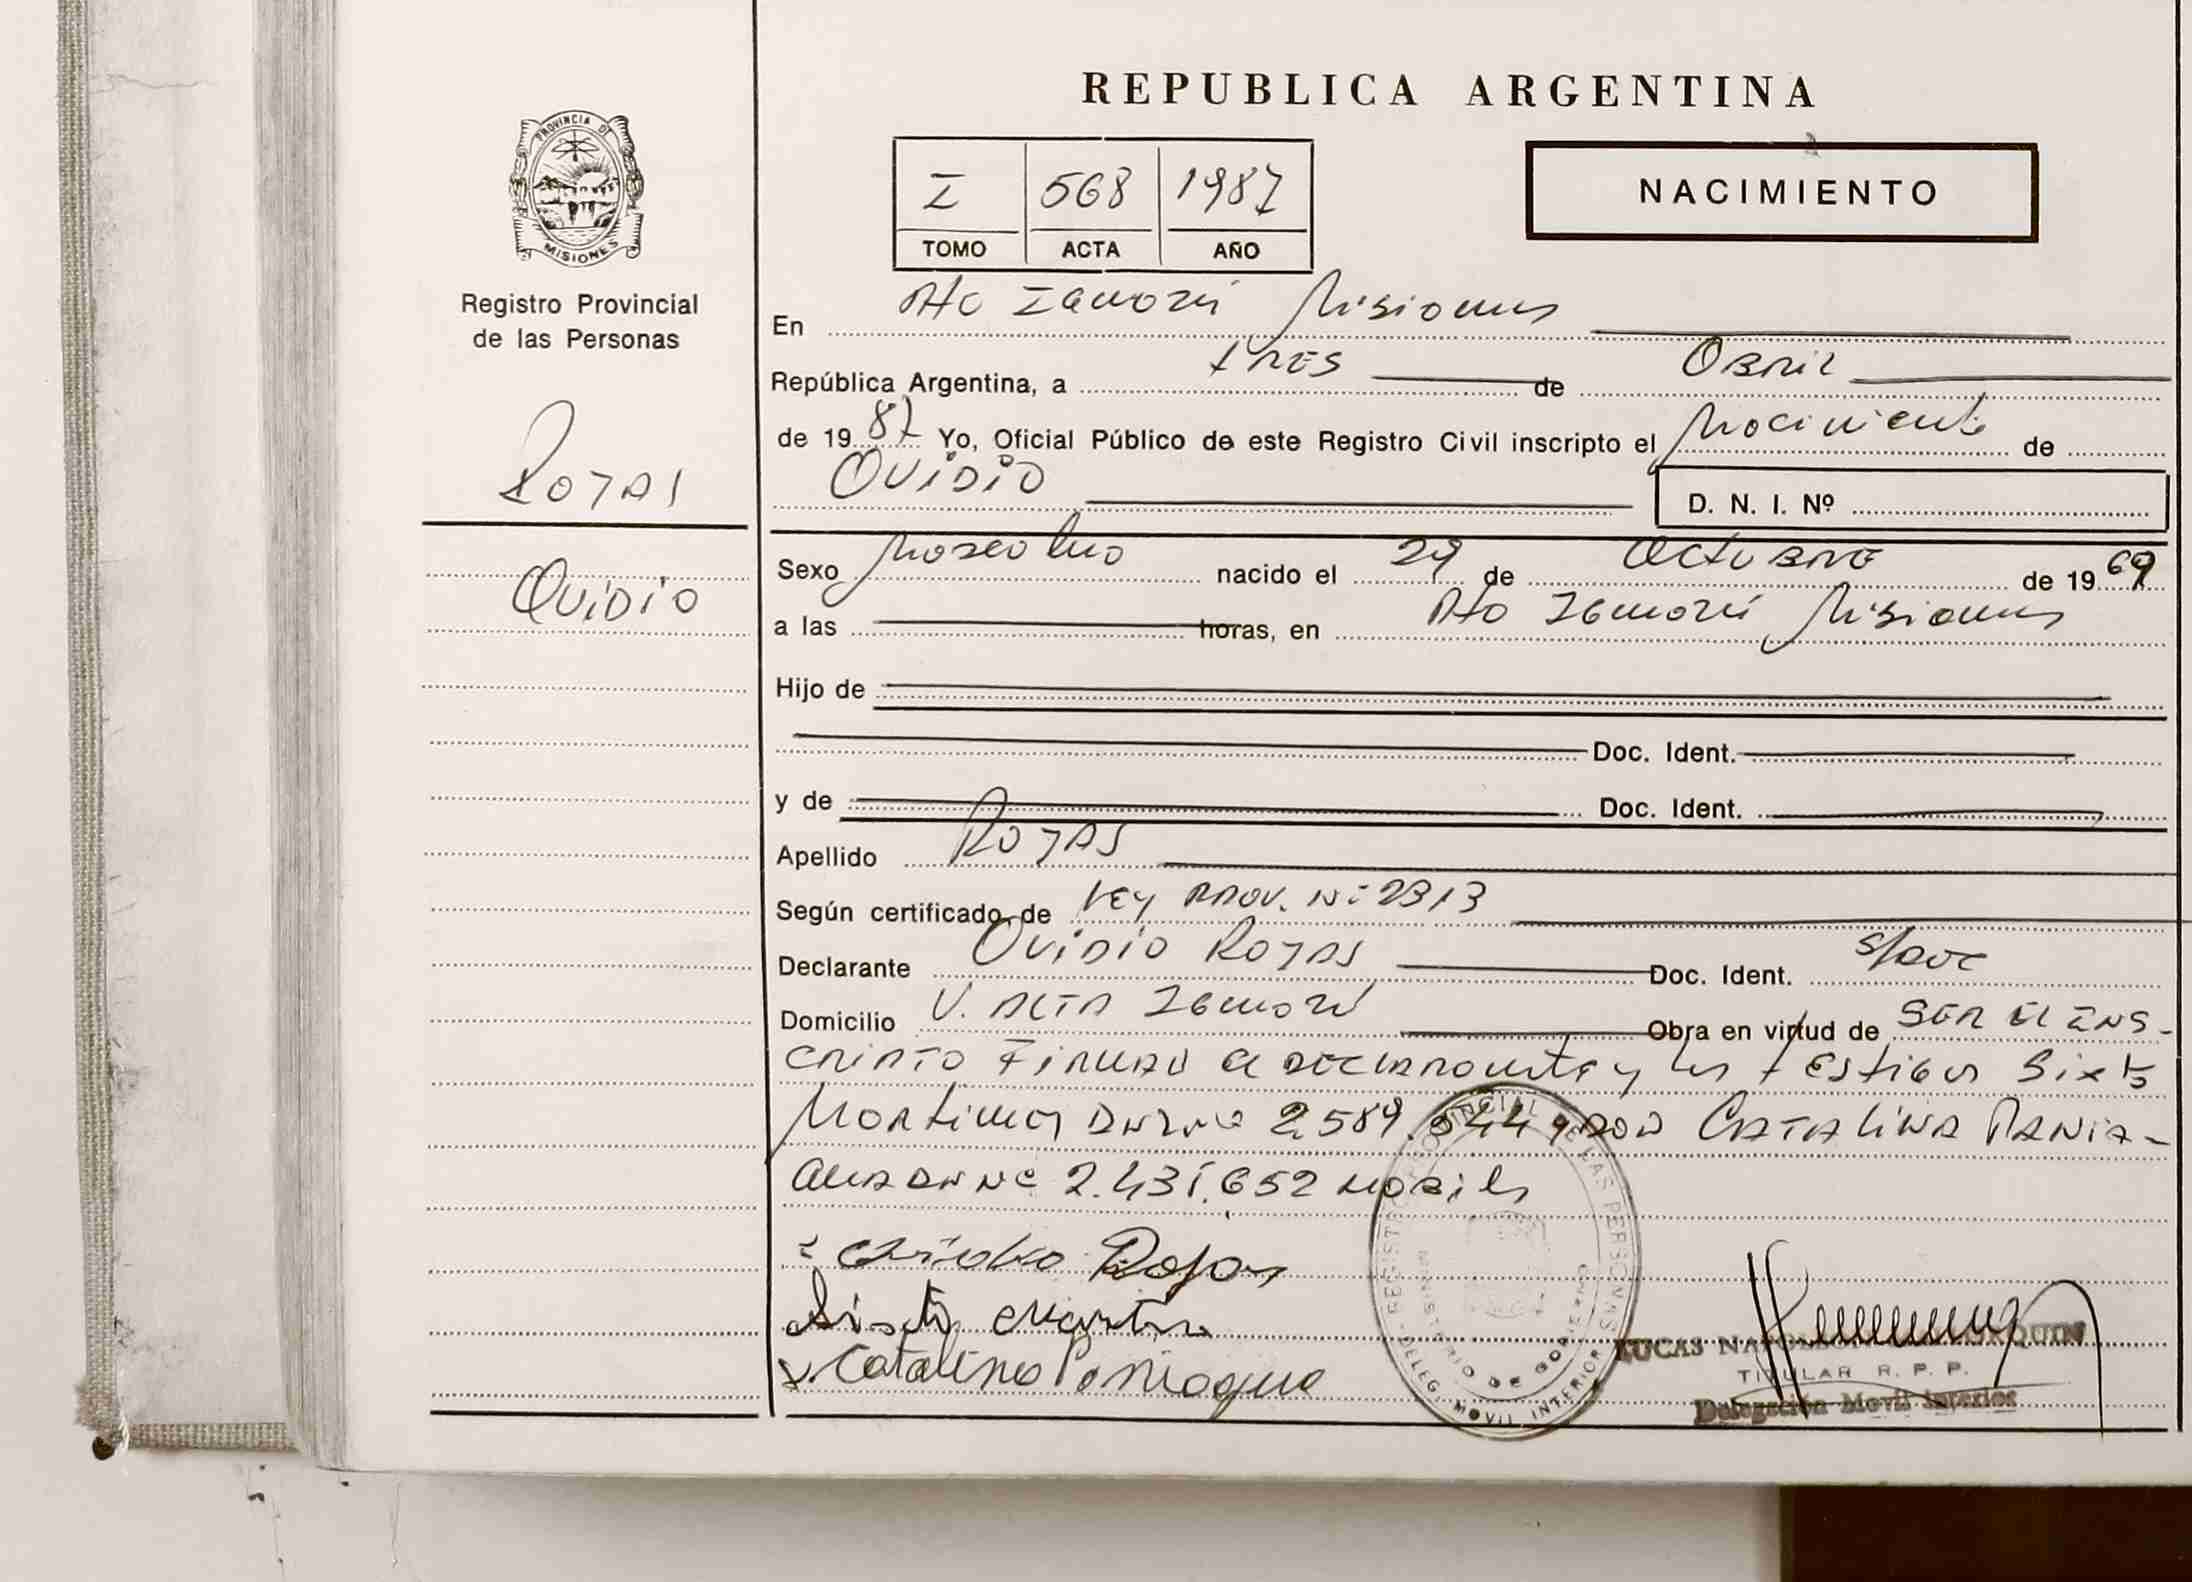 REPUBLICA ARGENTINA
PROVINCIA DE
MISIONES
Registro Provincial
de las Personas
I 568 1987
TOMO ACTA AÑO
NACIMIENTO
En Pto Misiones
República Argentina, a tres de Abril
de 1987 Yo, Oficial Público de este Registro Civil inscripto el Nacimiento de
Ovidio D. N. I. Nº
Rojas
Ovidio
Sexo Masculino nacido el 29 de Octubre de 1969
a las horas, en Pto Misiones
Hijo de
Doc. Ident.
y de Doc. Ident.
Apellido Rojas
Según certificado de Ley Prov. Nº 2313
Declarante Ovidio Rojas Doc. Ident. s/doc
Domicilio Obra en virtud de ser el ins-
cripto Firman el declarante y los testigos Sixto
Martinez 2.589.844 Catalina Pania-
gua 2.431.652
Rojas
Sixto Martinez
Catalina Paniagua
REGISTRO PROVINCIAL DE LAS PERSONAS
MINISTERIO DE GOBIERNO
DELEG. MOVIL INTERIOR
LUCAS
TITULAR R. P. P.
Delegación Movil Interior